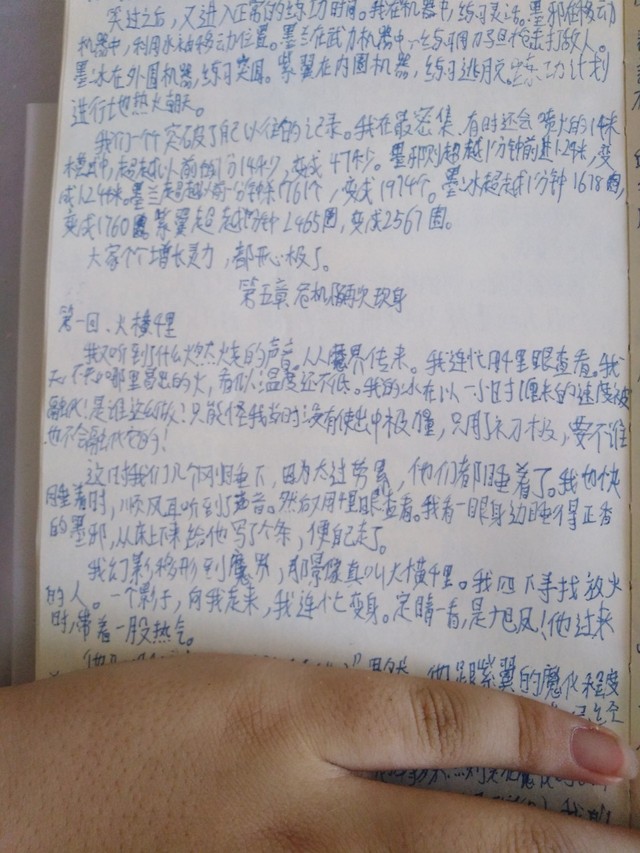 笑过之后，又进入正常的练功时间。我在机器中，练习灵活。墨邪在移动
机器中，利用水袖移动位置。墨兰在武力机器中，练习用刀与且枪击打敌人。
墨冰在外圆机器，练习突圆。紫翼在内圆机器，练习逃脱。练功计划
进行地热火朝天。
我们一个个突破了自己以往的记录。我在最密集、有时还会喷火的14米
模型中，超越以前的1分14秒，变成47秒。墨邪则超越1分钟前进1.2米，变
成1.24米。墨兰超越以前一分钟杀1761个，变成1974个。墨冰超越1分钟1678圆，
变成1760圆。紫翼超越1分钟2465圆，变成2567圆。
大家个个增长灵力，都开心极了。
第五章 危机再次现身
第一回、火横千里
我又听到了什么燃烧的声音。从魔界传来。我连忙用千里眼查看。我
不知哪里冒出的火，看似温度还不低。我的冰在以一小时1厘米的速度被
融化！是谁这么做！只能怪我当时没有使出中极力量，只用了初极，要不谁
也不会融化它的！
这时我们几个刚睡下，因为太过劳累，他们都睡着了。我也快
睡着时，顺风耳听到了声音。然后用千里眼查看。我看一眼身边睡得正香
的墨邪，从床上下来给他写了个条，便自己走了。
我幻影移形到魔界，那景像真叫火横千里。我四下寻找放火
的人。一个影子，向我走来，我连忙变身。定睛一看，是旭风！他过来
时，带着一股热气。
他跟紫翼的魔化程度